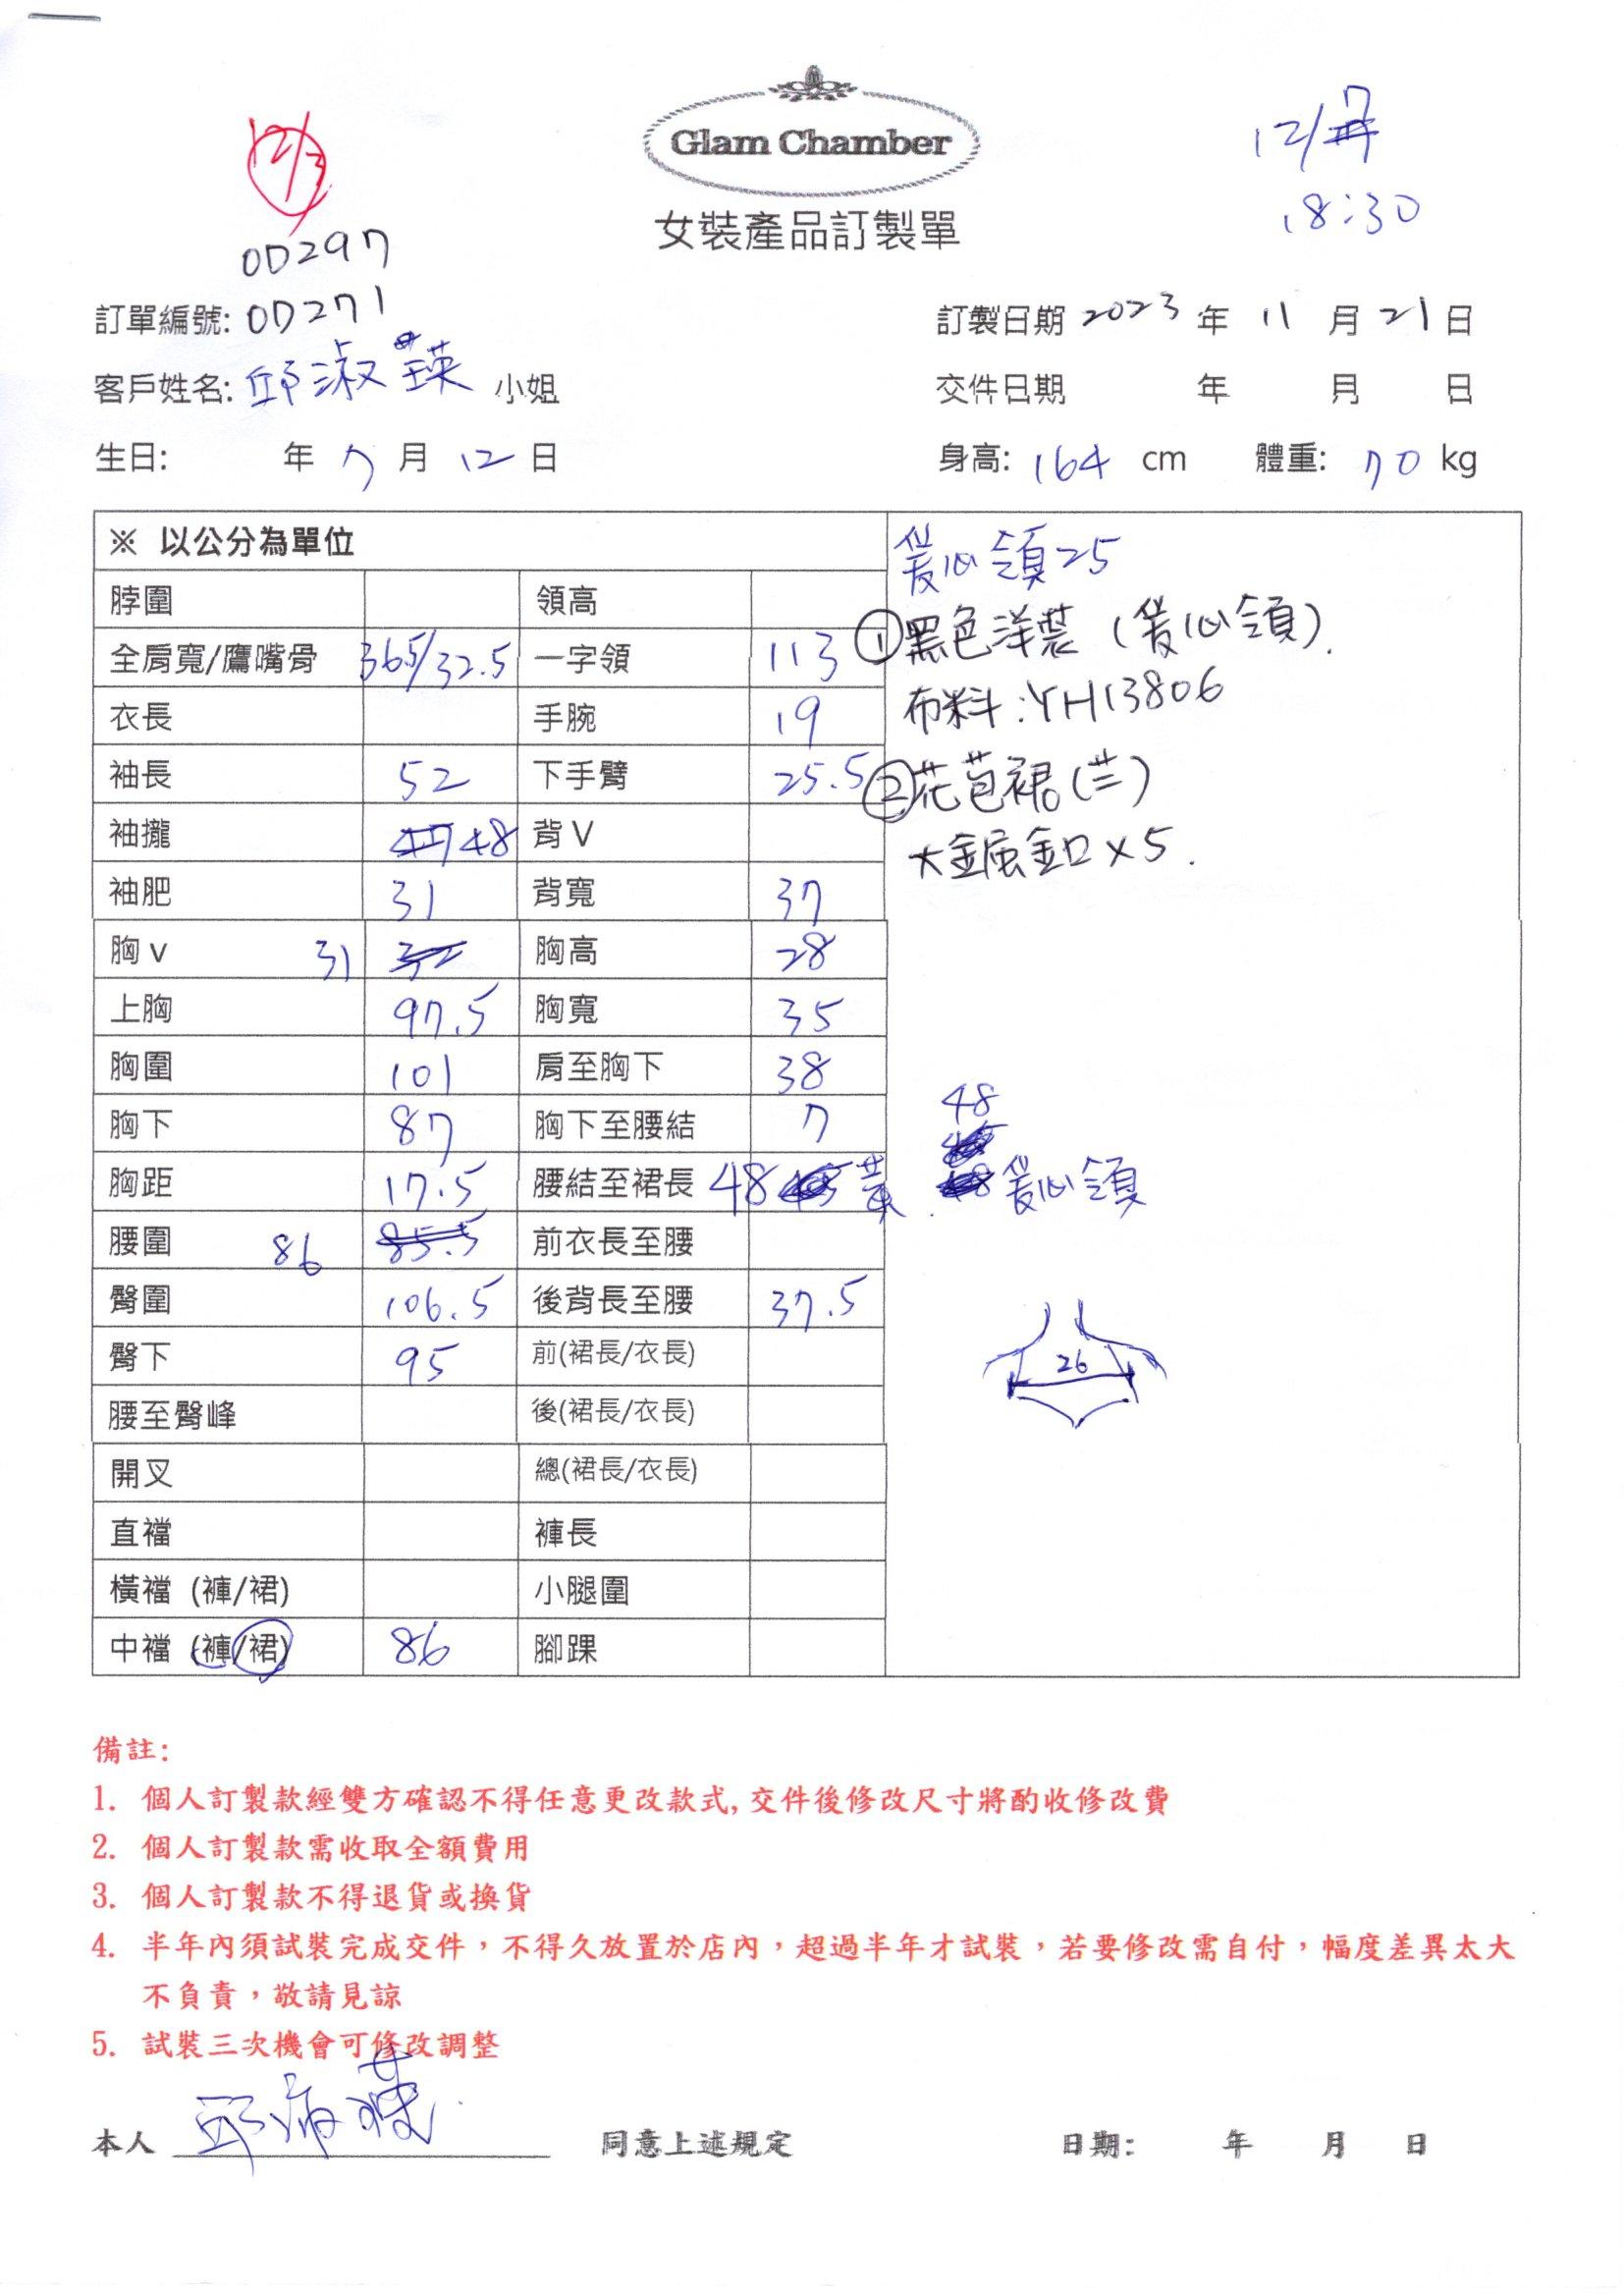 12/3
Glam Chamber
12/7
18:30
女裝產品訂製單
OD297
訂單編號: OD271 訂製日期 2023 年 11 月 21 日
客戶姓名: 邱淑瑛 小姐 交件日期 年 月 日
生日: 年 7 月 12 日 身高: 164 cm 體重: 70 kg
※ 以公分為單位
脖圍 領高
全肩寬/鷹嘴骨 36.5/32.5 一字領 113
衣長 手腕 19
袖長 52 下手臂 25.5
袖攏 47 48 背V
袖肥 31 背寬 37
胸v 31 32 胸高 28
上胸 97.5 胸寬 35
胸圍 101 肩至胸下 38
胸下 87 胸下至腰結 7
胸距 17.5 腰結至裙長 48
腰圍 86 85.5 前衣長至腰
臀圍 106.5 後背長至腰 37.5
臀下 95 前(裙長/衣長)
腰至臀峰 後(裙長/衣長)
開叉 總(裙長/衣長)
直襠 褲長
橫襠 (褲/裙) 小腿圍
中襠 (褲/裙) 86 腳踝
爱心領25
①黑色洋裝(爱心領).
布料:YH13806
②花苞裙
大金屬釦×5.
48
爱心領
26
備註:
1. 個人訂製款經雙方確認不得任意更改款式,交件後修改尺寸將酌收修改費
2. 個人訂製款需收取全額費用
3. 個人訂製款不得退貨或換貨
4. 半年內須試裝完成交件，不得久放置於店內，超過半年才試裝，若要修改需自付，幅度差異太大
不負責，敬請見諒
5. 試裝三次機會可修改調整
本人 同意上述規定 日期: 年 月 日